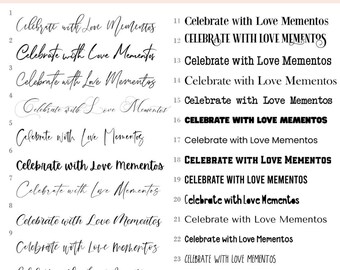 1
Celebrate with Love Mementos
2
Celebrate with Love Mementos
3
Celebrate with Love Mementos
4
Celebrate with Love Mementos
5
Celebrate with Love Mementos
6
Celebrate with Love Mementos
7
Celebrate with Love Mementos
8
Celebrate with Love Mementos
9
Celebrate with Love Mementos
Celebrate with Love Mementos
11 Celebrate with Love Mementos
12 CELEBRATE WITH LOVE MEMENTOS
13 Celebrate with Love Mementos
14 Celebrate with Love Mementos
15 Celebrate with Love Mementos
16 CELEBRATE WITH LOVE MEMENTOS
17 Celebrate with Love Mementos
18 Celebrate with Love Mementos
19 CELEBRATE WITH LOVE MEMENTOS
20 Celebrate with Love Mementos
21 Celebrate with Love Mementos
22 Celebrate with Love Mementos
23 CELEBRATE WITH LOVE MEMENTOS